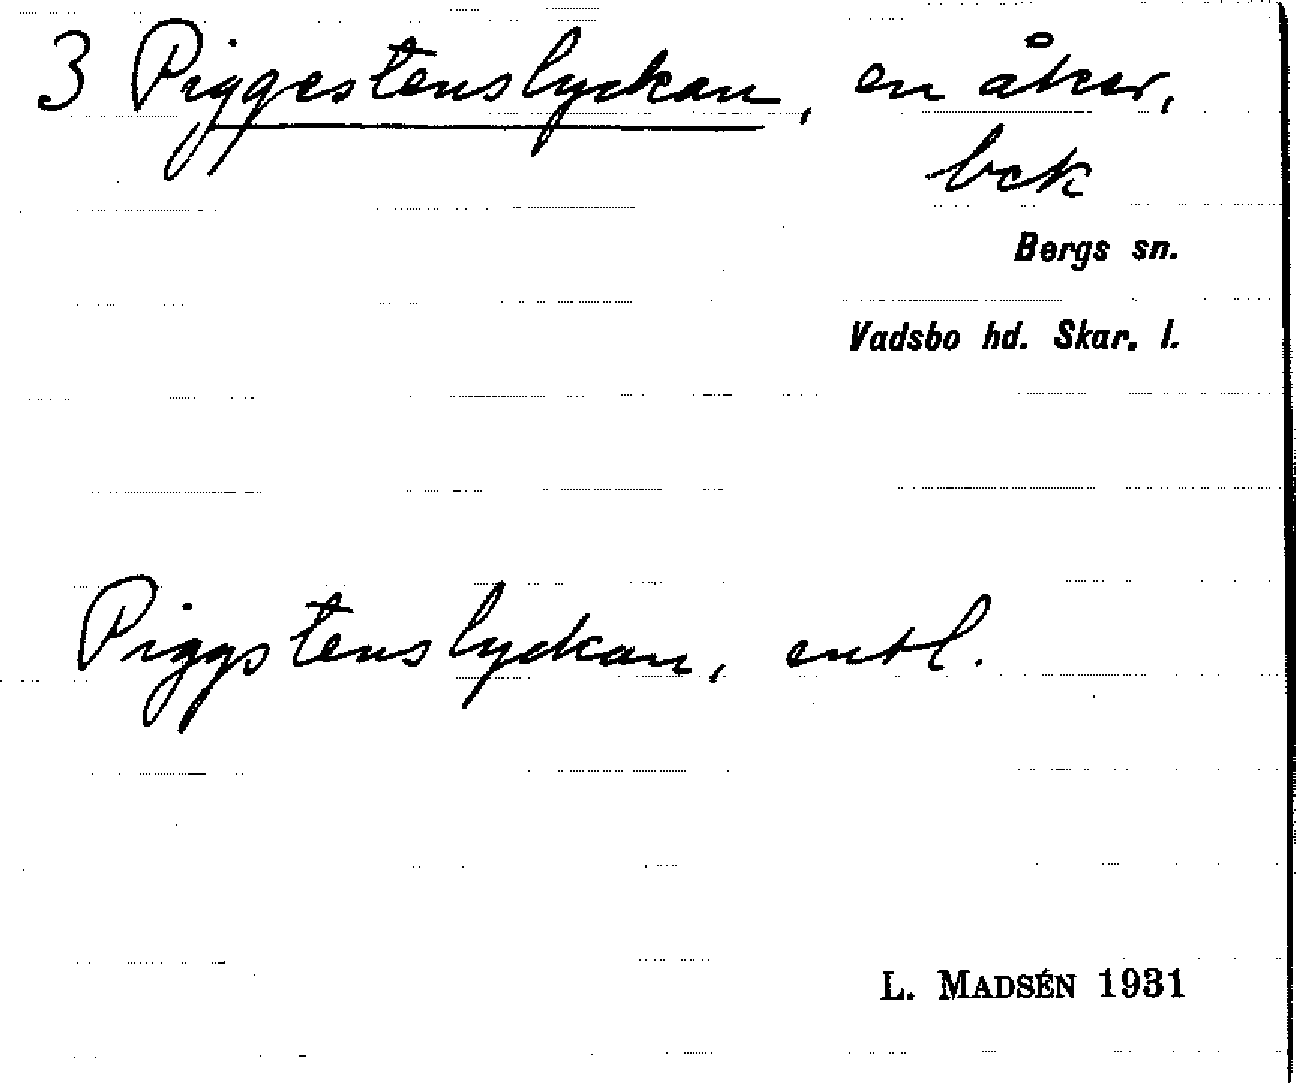 3 Piggestenslyckan, en åker,
bck
Bergs sn.
Vadsbo hd. Skar. l.
Piggstenslyckan, entl.
L. MADSÉN 1931